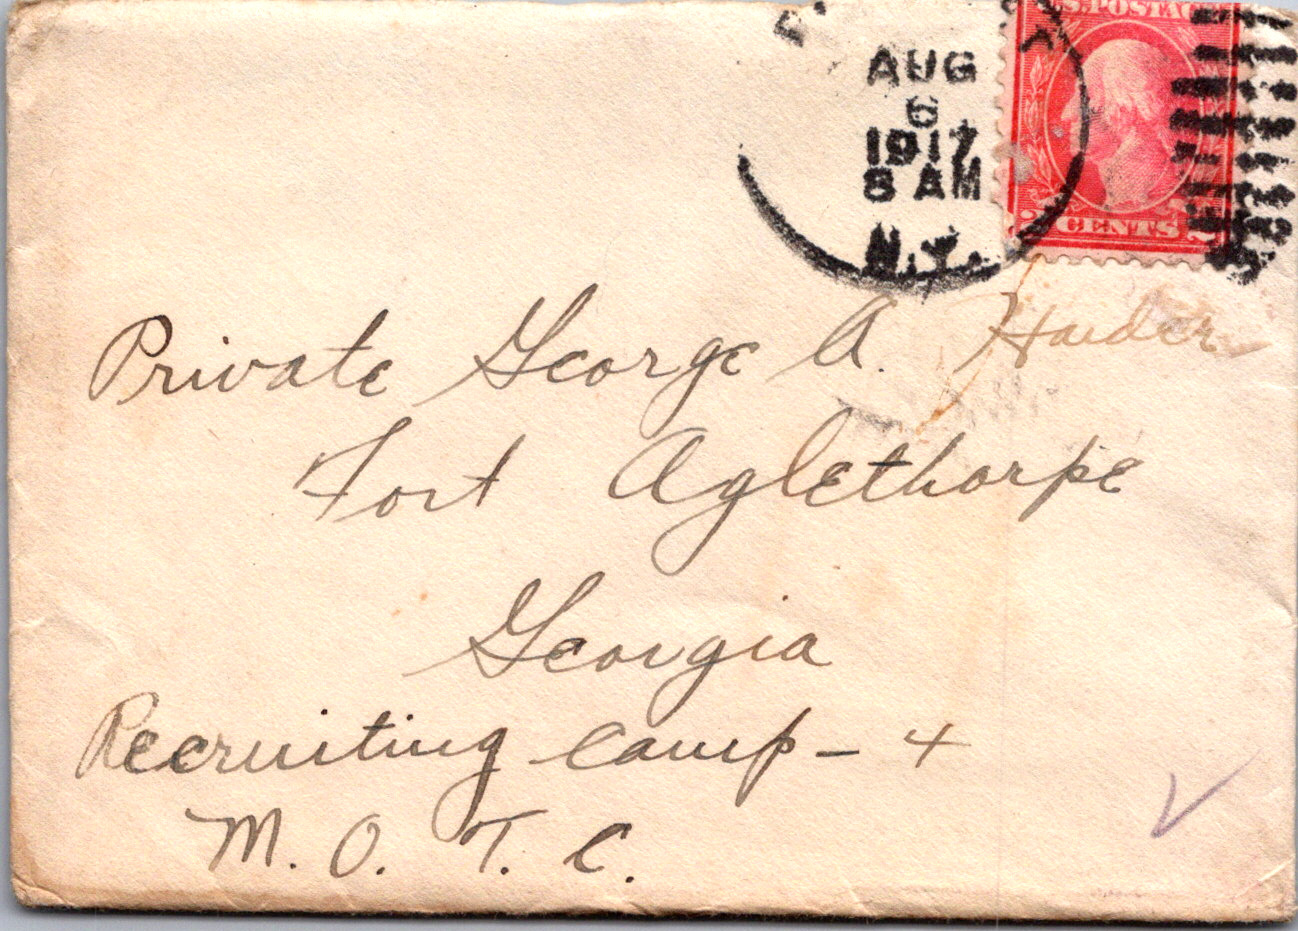 U.S. POSTAGE
AUG
6
1917
8 AM
N.Y.
2 CENTS 2
Private George A. Haider
Fort Oglethorpe
Georgia
Recruiting Camp - 4
M. O. T. C.